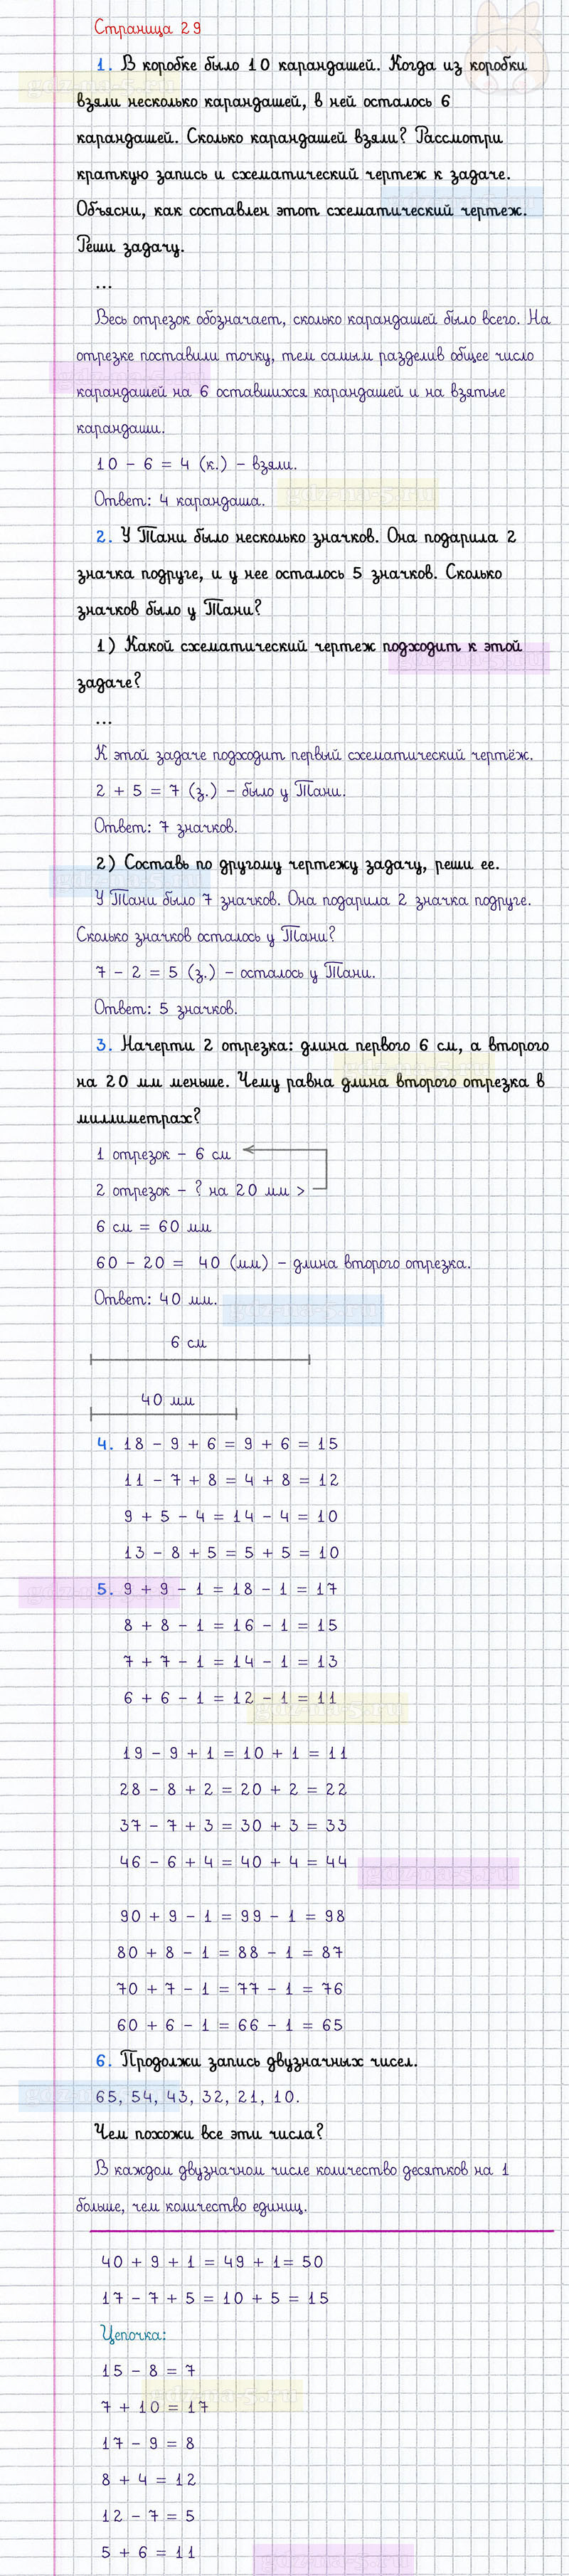 Страница 29
1. В коробке было 10 карандашей. Когда из коробки
взяли несколько карандашей, в ней осталось 6
карандашей. Сколько карандашей взяли? Рассмотри
краткую запись и схематический чертеж к задаче.
Объясни, как составлен этот схематический чертеж.
Реши задачу.
...
Весь отрезок обозначает, сколько карандашей было всего. На
отрезке поставили точку, тем самым разделив общее число
карандашей на 6 оставшихся карандашей и на взятые
карандаши.
10 - 6 = 4 (к.) - взяли.
Ответ: 4 карандаша.
2. У Тани было несколько значков. Она подарила 2
значка подруге, и у нее осталось 5 значков. Сколько
значков было у Тани?
1) Какой схематический чертеж подходит к этой
задаче?
...
К этой задаче подходит первый схематический чертёж.
2 + 5 = 7 (з.) - было у Тани.
Ответ: 7 значков.
2) Составь по другому чертежу задачу, реши ее.
У Тани было 7 значков. Она подарила 2 значка подруге.
Сколько значков осталось у Тани?
7 - 2 = 5 (з.) - осталось у Тани.
Ответ: 5 значков.
3. Начерти 2 отрезка: длина первого 6 см, а второго
на 20 мм меньше. Чему равна длина второго отрезка в
миллиметрах?
1 отрезок - 6 см
2 отрезок - ? на 20 мм >
6 см = 60 мм
60 - 20 = 40 (мм) - длина второго отрезка.
Ответ: 40 мм.
6 см
40 мм
4. 18 - 9 + 6 = 9 + 6 = 15
11 - 7 + 8 = 4 + 8 = 12
9 + 5 - 4 = 14 - 4 = 10
13 - 8 + 5 = 5 + 5 = 10
5. 9 + 9 - 1 = 18 - 1 = 17
8 + 8 - 1 = 16 - 1 = 15
7 + 7 - 1 = 14 - 1 = 13
6 + 6 - 1 = 12 - 1 = 11
19 - 9 + 1 = 10 + 1 = 11
28 - 8 + 2 = 20 + 2 = 22
37 - 7 + 3 = 30 + 3 = 33
46 - 6 + 4 = 40 + 4 = 44
90 + 9 - 1 = 99 - 1 = 98
80 + 8 - 1 = 88 - 1 = 87
70 + 7 - 1 = 77 - 1 = 76
60 + 6 - 1 = 66 - 1 = 65
6. Продолжи запись двузначных чисел.
65, 54, 43, 32, 21, 10.
Чем похожи все эти числа?
В каждом двузначном числе количество десятков на 1
больше, чем количество единиц.
40 + 9 + 1 = 49 + 1= 50
17 - 7 + 5 = 10 + 5 = 15
Цепочка:
15 - 8 = 7
7 + 10 = 17
17 - 9 = 8
8 + 4 = 12
12 - 7 = 5
5 + 6 = 11